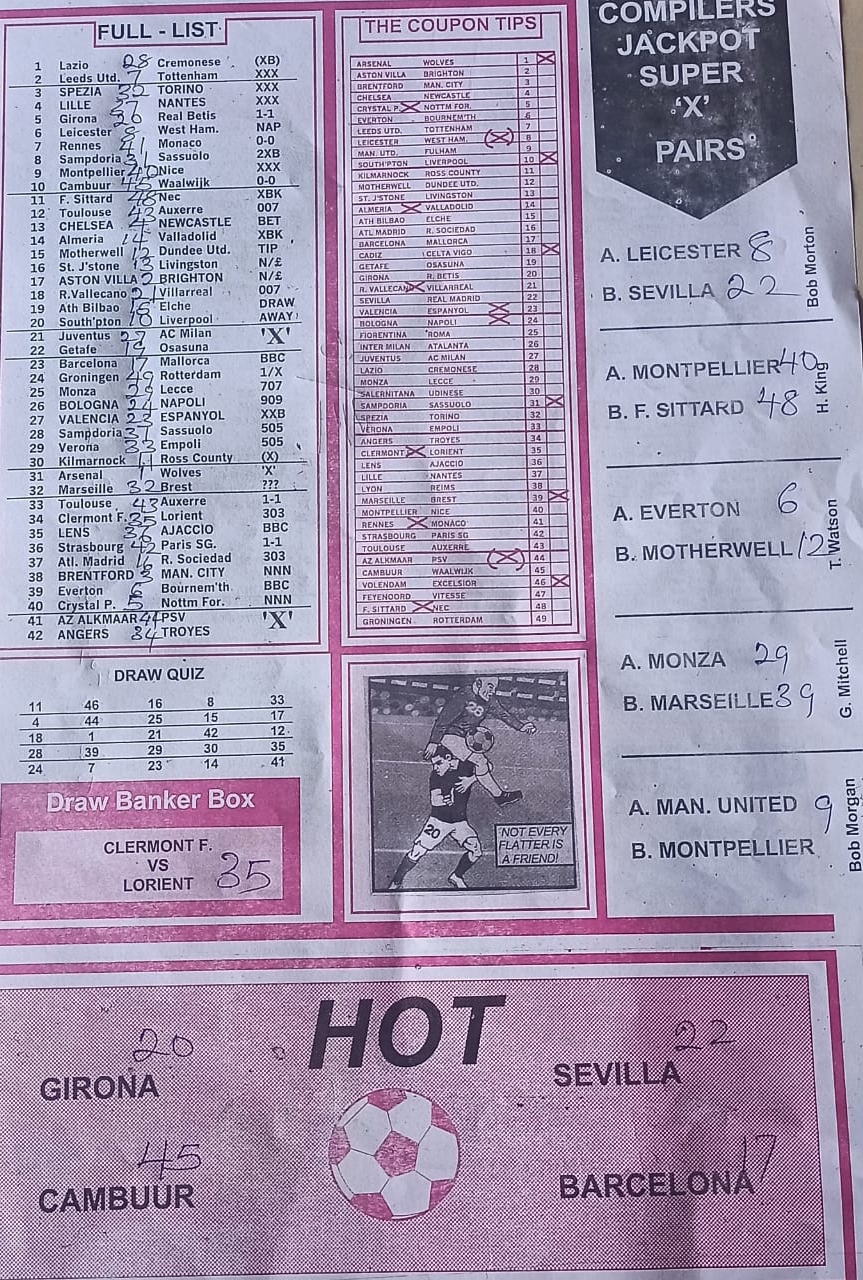 FULL - LIST
1 Lazio 28 Cremonese (XB)
2 Leeds Utd. 7 Tottenham XXX
3 SPEZIA 32 TORINO XXX
4 LILLE 37 NANTES XXX
5 Girona 20 Real Betis 1-1
6 Leicester 8 West Ham. NAP
7 Rennes 41 Monaco 0-0
8 Sampdoria 31 Sassuolo 2XB
9 Montpellier 40 Nice XXX
10 Cambuur 45 Waalwijk 0-0
11 F. Sittard 48 Nec XBK
12 Toulouse 43 Auxerre 007
13 CHELSEA 4 NEWCASTLE BET
14 Almeria 14 Valladolid XBK
15 Motherwell 12 Dundee Utd. TIP
16 St. J'stone 13 Livingston N/£
17 ASTON VILLA 2 BRIGHTON N/£
18 R.Vallecano 21 Villarreal 007
19 Ath Bilbao 15 Elche DRAW
20 South'pton 10 Liverpool AWAY!
21 Juventus 27 AC Milan 'X'
22 Getafe 19 Osasuna
23 Barcelona 17 Mallorca BBC
24 Groningen 49 Rotterdam 1/X
25 Monza 29 Lecce 707
26 BOLOGNA 24 NAPOLI 909
27 VALENCIA 23 ESPANYOL XXB
28 Sampdoria 31 Sassuolo 505
29 Verona 33 Empoli 505
30 Kilmarnock 11 Ross County (X)
31 Arsenal 1 Wolves 'X'
32 Marseille 32 Brest ???
33 Toulouse 43 Auxerre 1-1
34 Clermont F. 35 Lorient 303
35 LENS 36 AJACCIO BBC
36 Strasbourg 42 Paris SG. 1-1
37 Atl. Madrid 16 R. Sociedad 303
38 BRENTFORD 3 MAN. CITY NNN
39 Everton 6 Bournem'th BBC
40 Crystal P. 5 Nottm For. NNN
41 AZ ALKMAAR 44 PSV 'X'
42 ANGERS 34 TROYES
DRAW QUIZ
11 46 16 8 33
4 44 25 15 17
18 1 21 42 12
28 39 29 30 35
24 7 23 14 41
Draw Banker Box
CLERMONT F.
VS
LORIENT 35
THE COUPON TIPS
ARSENAL WOLVES 1 X
ASTON VILLA BRIGHTON 2
BRENTFORD MAN. CITY 3
CHELSEA NEWCASTLE 4
CRYSTAL P. X NOTTM FOR. 5
EVERTON BOURNEM'TH 6
LEEDS UTD. TOTTENHAM 7
LEICESTER WEST HAM. (X) 8
MAN. UTD. FULHAM 9
SOUTH'PTON LIVERPOOL 10 X
KILMARNOCK ROSS COUNTY 11
MOTHERWELL DUNDEE UTD. 12
ST. J'STONE LIVINGSTON 13
ALMERIA X VALLADOLID 14
ATH BILBAO ELCHE 15
ATL MADRID R. SOCIEDAD 16
BARCELONA MALLORCA 17
CADIZ CELTA VIGO 18 X
GETAFE OSASUNA 19
GIRONA R. BETIS 20
R. VALLECANO X VILLARREAL 21
SEVILLA REAL MADRID 22
VALENCIA ESPANYOL X 23
BOLOGNA NAPOLI X 24
FIORENTINA ROMA 25
INTER MILAN ATALANTA 26
JUVENTUS AC MILAN 27
LAZIO CREMONESE 28
MONZA LECCE 29
SALERNITANA UDINESE 30
SAMPDORIA SASSUOLO 31 X
SPEZIA TORINO 32
VERONA EMPOLI 33
ANGERS TROYES 34
CLERMONT X LORIENT 35
LENS AJACCIO 36
LILLE NANTES 37
LYON REIMS 38
MARSEILLE BREST 39 X
MONTPELLIER NICE 40
RENNES X MONACO 41
STRASBOURG PARIS SG 42
TOULOUSE AUXERRE 43
AZ ALKMAAR PSV (X) 44
CAMBUUR WAALWIJK 45
VOLENDAM EXCELSIOR 46 X
FEYENOORD VITESSE 47
F. SITTARD X NEC 48
GRONINGEN ROTTERDAM 49
28
20
'NOT EVERY
FLATTER IS
A FRIEND!
COMPILERS
JACKPOT
SUPER
'X'
PAIRS
A. LEICESTER 8
B. SEVILLA 22
Bob Morton
A. MONTPELLIER 40
B. F. SITTARD 48
H. King
A. EVERTON 6
B. MOTHERWELL 12
T. Watson
A. MONZA 29
B. MARSEILLE 39
G. Mitchell
A. MAN. UNITED 9
B. MONTPELLIER
Bob Morgan
HOT
GIRONA 20
SEVILLA 22
CAMBUUR 45
BARCELONA 17